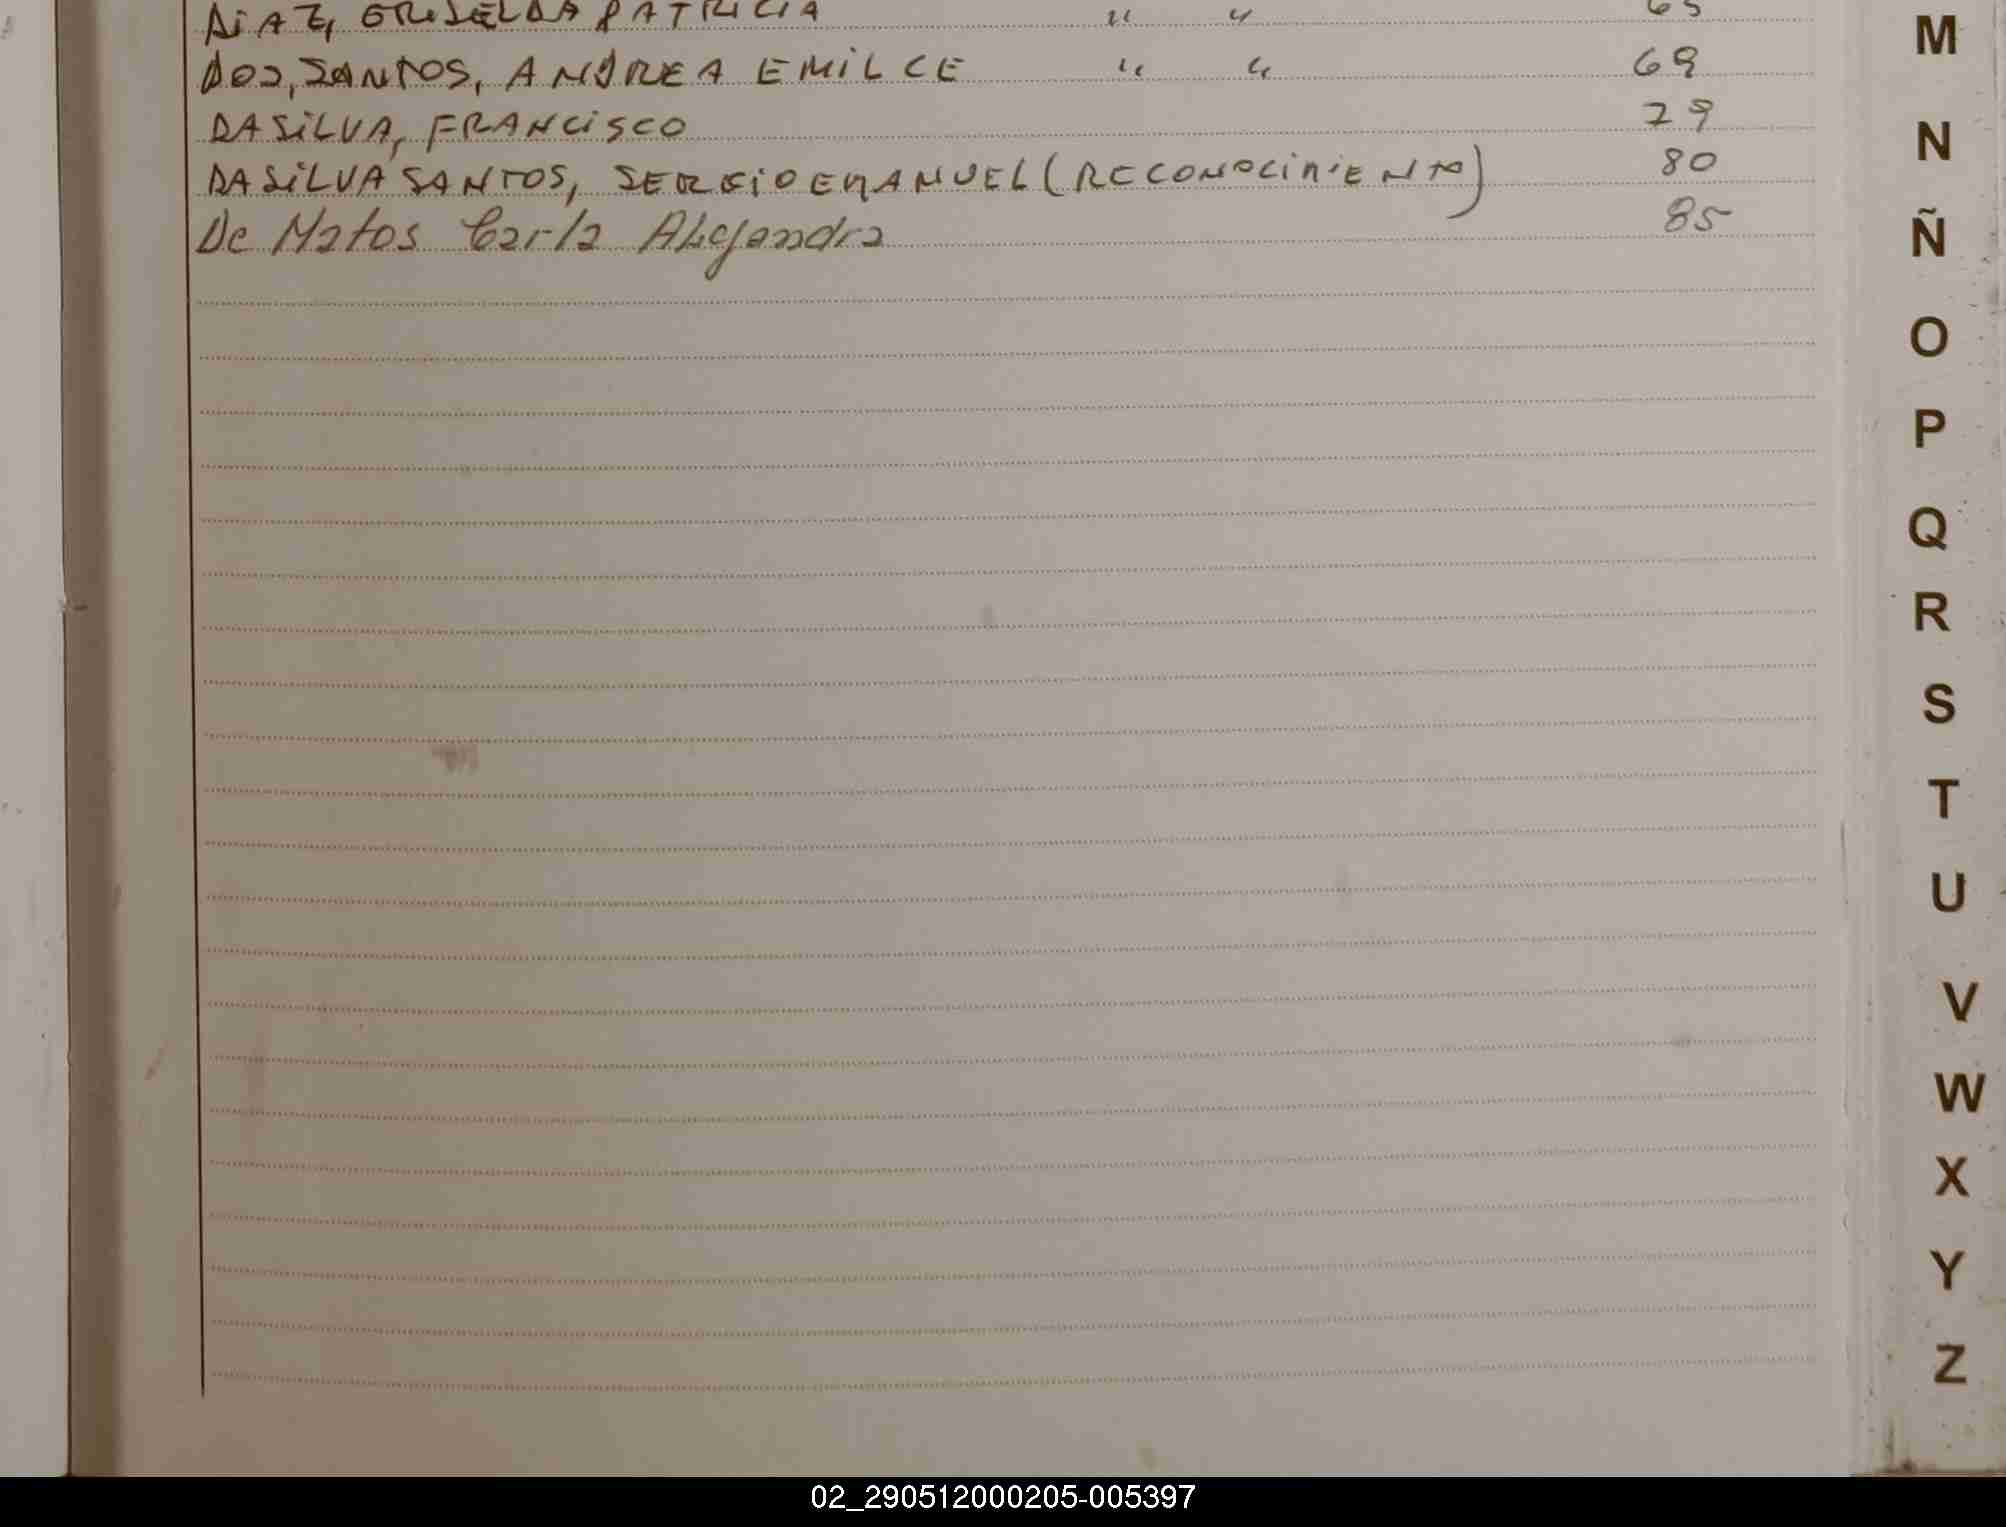 DIAZ, GRISELDA PATRICIA " " 65
DOS, SANTOS, ANDREA EMILCE " " 69
DASILVA, FRANCISCO 79
DASILVA SANTOS, SERGIO EMANUEL (RECONOCIMIENTO) 80
De Matos Carla Alejandra 85
M
N
Ñ
O
P
Q
R
S
T
U
V
W
X
Y
Z
02_290512000205-005397